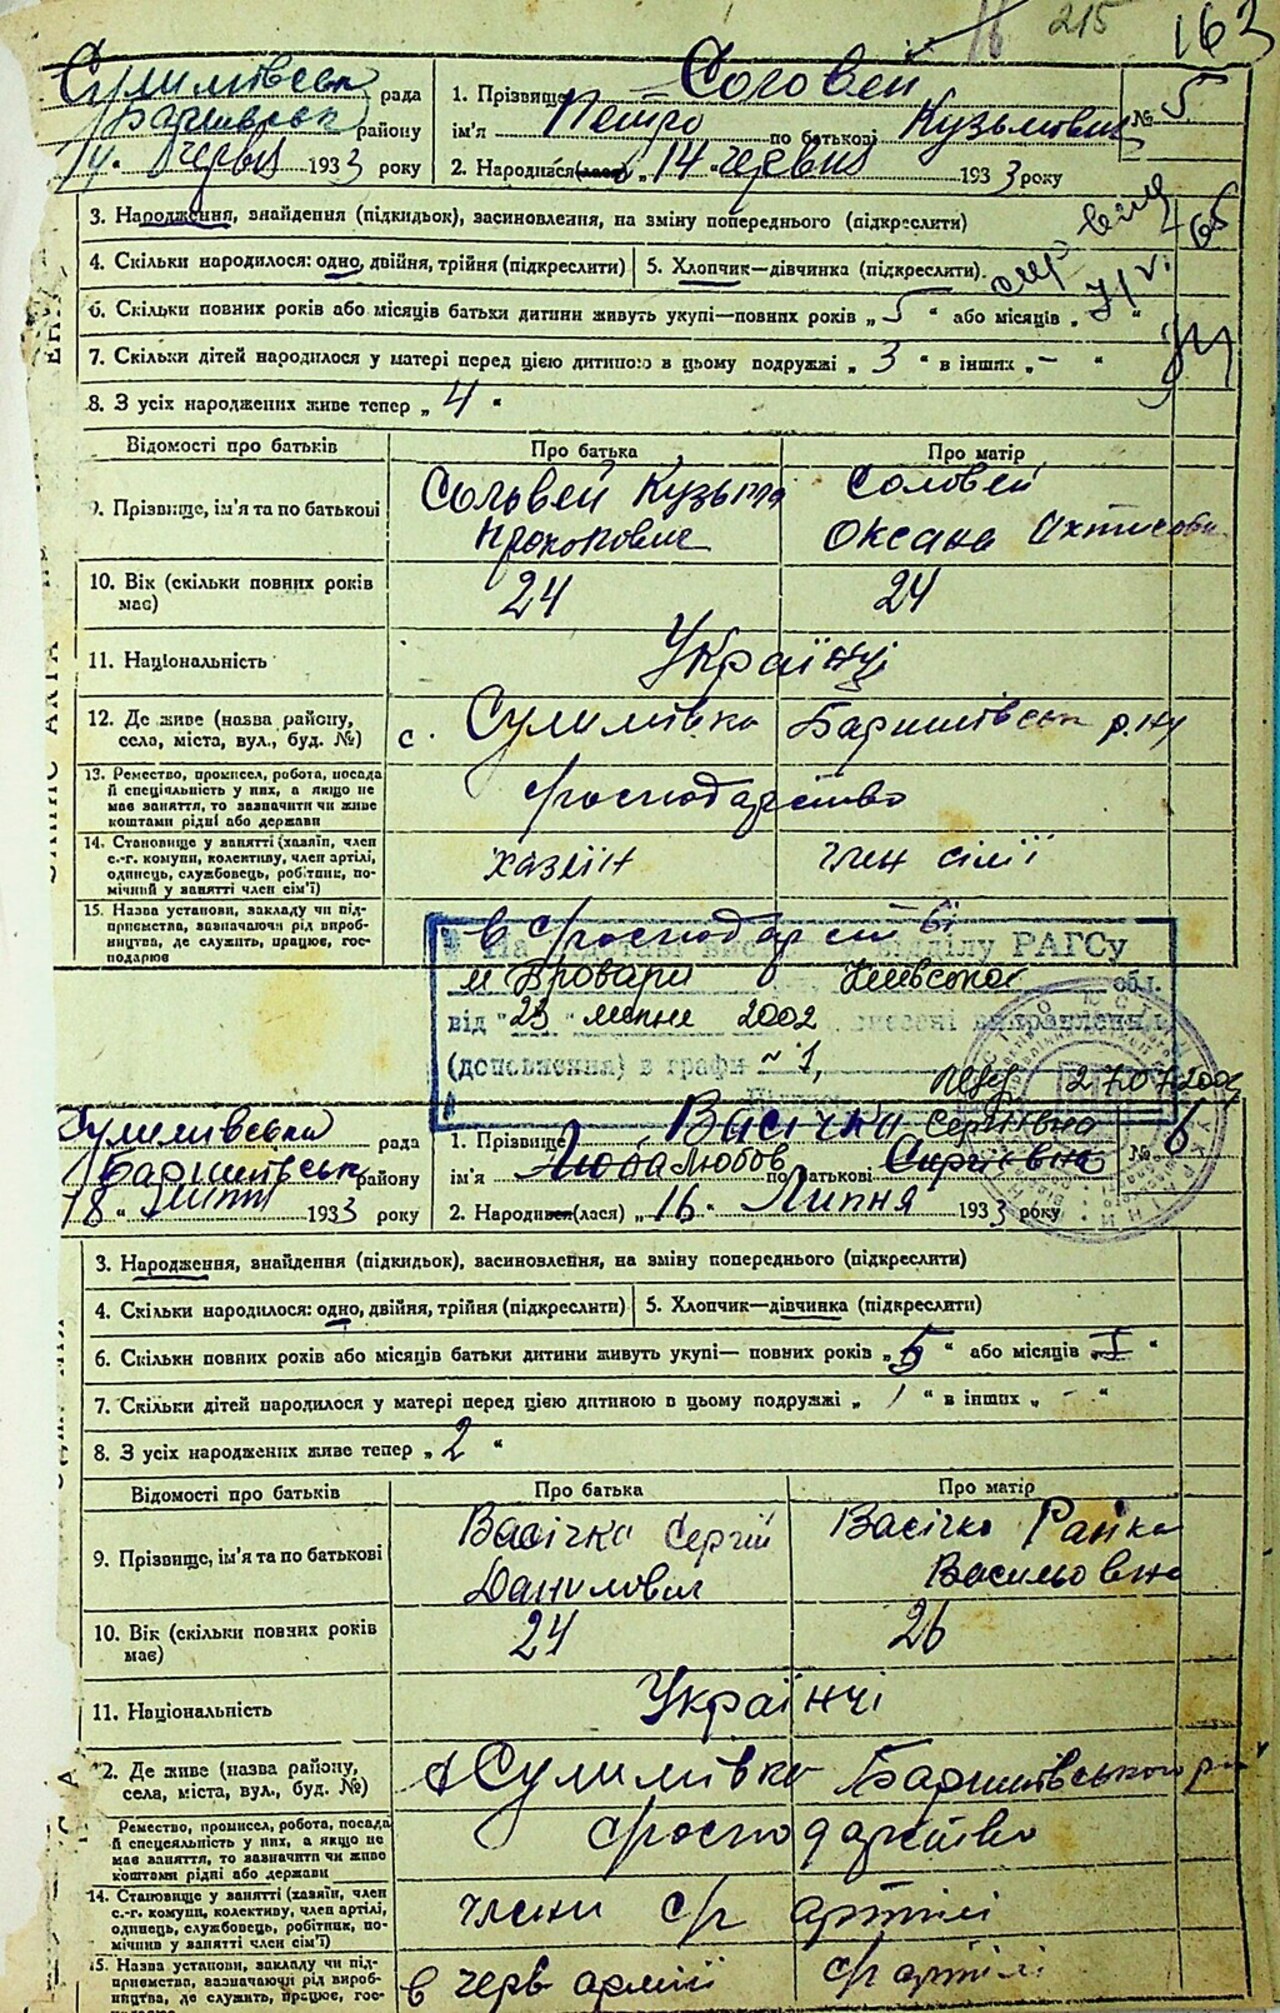 215 163
Сулимівська рада
Баришівськ району
14 червня 1933 року
1. Прізвище Соловей
ім'я Петро по батькові Кузьмович
№ 5
2. Народився(лася) „14" червня 1933 року
3. Народження, знайдення (підкидьок), засиновлення, на зміну попереднього (підкреслити)
4. Скільки народилося: одно, двійня, трійня (підкреслити)
5. Хлопчик—дівчинка (підкреслити).
6. Скільки повних років або місяців батьки дитини живуть укупі—повних років „5" або місяців „ "
7. Скільки дітей народилося у матері перед цією дитиною в цьому подружжі „3" в інших „–"
8. З усіх народжених живе тепер „4"
Відомості про батьків Про батька Про матір
9. Прізвище, ім'я та по батькові
Соловей Кузьма
Прокопович
Соловей
Оксана
10. Вік (скільки повних років має)
24 24
11. Національність Українці
12. Де живе (назва району,
села, міста, вул., буд. №)
с. Сулимівка Баришівськ р-ну
13. Ремество, промисел, робота, посада
й спеціяльність у них, а якщо не
має заняття, то зазначити чи живе
коштами рідні або держави
господарство
14. Становище у занятті (хазяїн, член
с.-г. комуни, колективу, член артілі,
одинець, службовець, робітник, по-
мічний у занятті член сім'ї)
хазяїн член сім'ї
15. Назва установи, закладу чи під-
приємства, зазначаючи рід вироб-
ництва, де служить, працює, гос-
подарює
в господарстві
На підставі відділу РАГСу
м Бровари Київської обл.
від "23" липня 2002 внесені виправлення
(доповнення) в графи ~ 1,
27.07.2002
Сулимівська рада
Баришівськ району
18 липня 1933 року
1. Прізвище Васічка Сергіївна
ім'я Люба Любов по батькові Сергіївна
№ 6
2. Народився(лася) „16" Липня 1933 року
3. Народження, знайдення (підкидьок), засиновлення, на зміну попереднього (підкреслити)
4. Скільки народилося: одно, двійня, трійня (підкреслити)
5. Хлопчик—дівчинка (підкреслити)
6. Скільки повних років або місяців батьки дитини живуть укупі— повних років „5" або місяців „I"
7. Скільки дітей народилося у матері перед цією дитиною в цьому подружжі „1" в інших „-"
8. З усіх народжених живе тепер „2"
Відомості про батьків Про батька Про матір
9. Прізвище, ім'я та по батькові
Васічка Сергій
Данилович
Васічка
Васильовна
10. Вік (скільки повних років має)
24 26
11. Національність Українчі
12. Де живе (назва району,
села, міста, вул., буд. №)
с Сулимівка Баришівського р-н
Ремество, промисел, робота, посада
й спецеяльність у них, а якщо не
має заняття, то зазначити чи живе
коштами рідні або держави
господарство
14. Становище у занятті (хазяїн, член
с.-г. комуни, колективу, член артілі,
одинець, службовець, робітник, по-
мічник у занятті член сім'ї)
члени с/г артілі
15. Назва установи, закладу чи під-
приємства, зазначаючи рід вироб-
ництва, де служить, працює, гос-
в черв армії с/г артілі